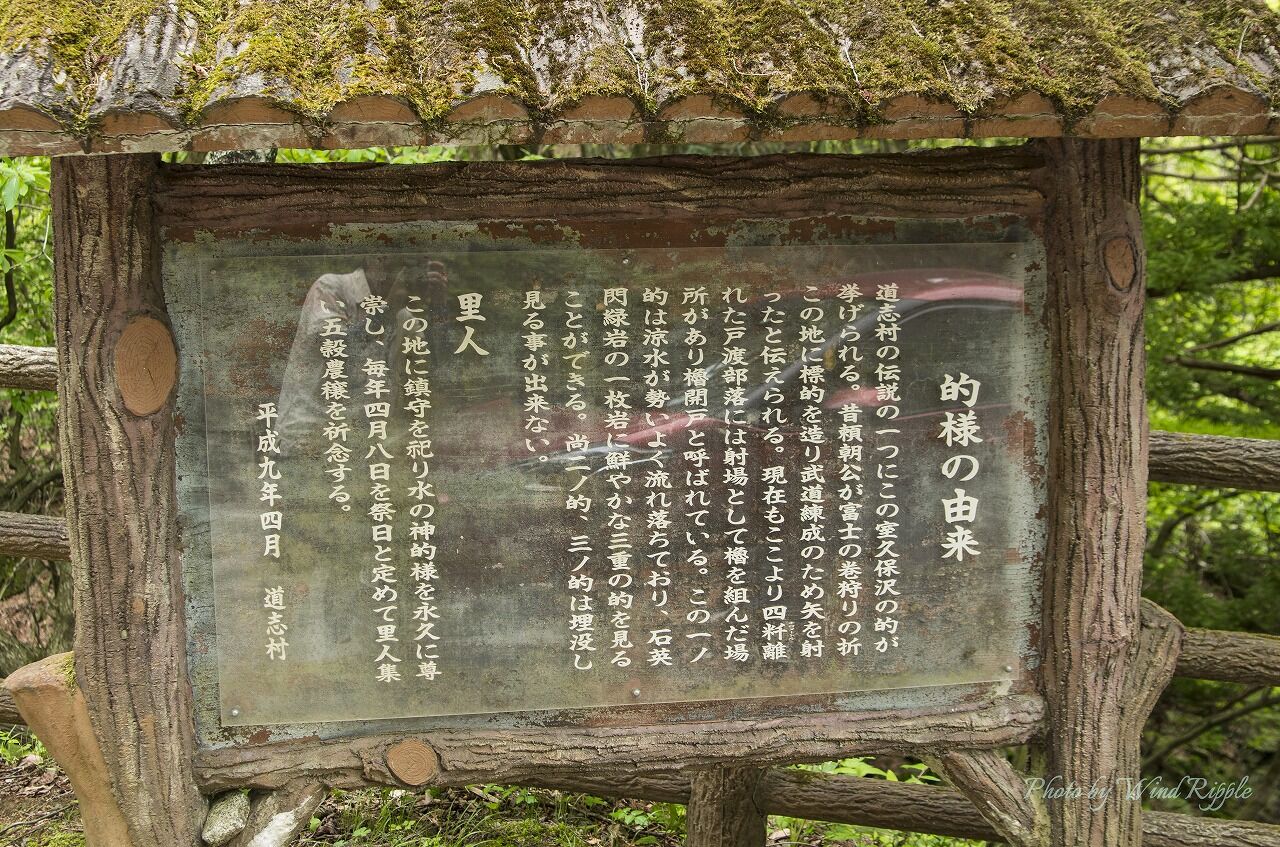 的様の由来
道志村の伝説の一つにこの室久保沢の的が
挙げられる。昔頼朝公が富士の巻狩りの折
この地に標的を造り武道練成のため矢を射
ったと伝えられる。現在もここより四粁離
れた戸渡部落には射場として櫓を組んだ場
所があり櫓開戸と呼ばれている。この一ノ
的は涼水が勢いよく流れ落ちており、石英
閃緑岩の一枚岩に鮮やかな三重の的を見る
ことができる。尚二ノ的、三ノ的は埋没し
見る事が出来ない。
里人
この地に鎮守を祀り水の神的様を永久に尊
崇し、毎年四月八日を祭日と定めて里人集
い五穀農穣を祈念する。
平成九年四月 道志村
Photo by Wind Ripple